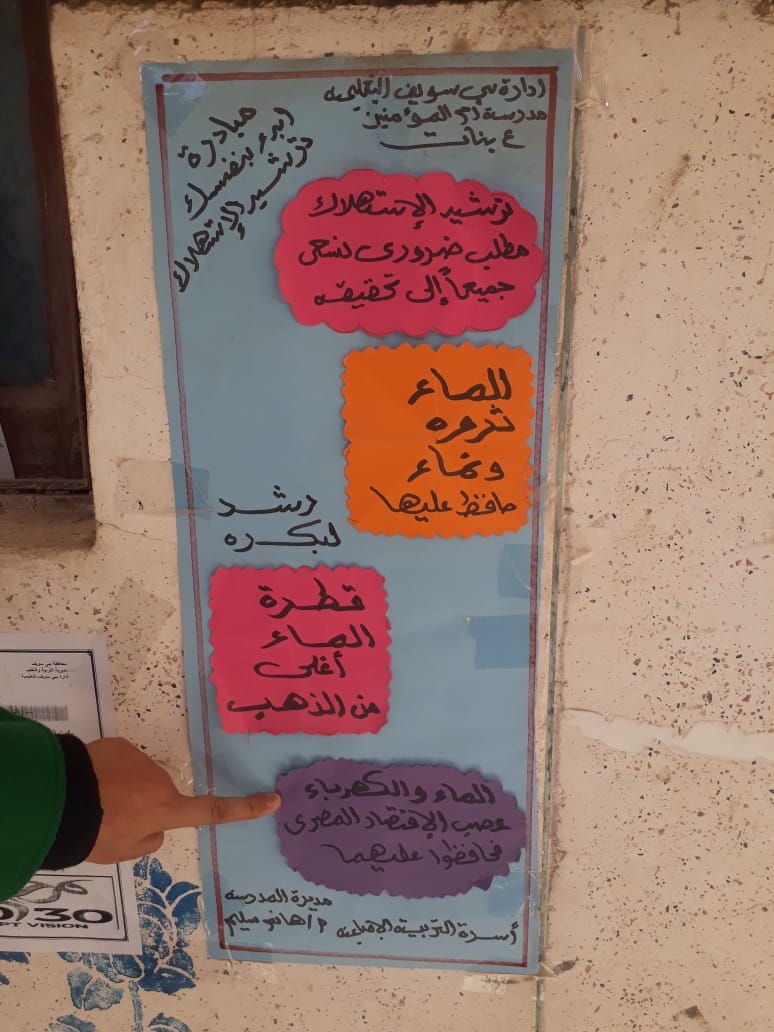 ادارة بني سويف التعليمية
مدرسة أم المؤمنين
ع بنات
مبادرة
ابدء بنفسك
ترشيد الإستهلاك
ترشيد الإستهلاك
مطلب ضرورى نسعى
جميعاً إلى تحقيقه
الماء
ثروه
ونماء
حافظ عليها
رشد
لبكره
قطرة
الماء
أغلى
من الذهب
الماء والكهرباء
عصب الإقتصاد المصرى
فحافظوا عليهما
مديرة المدرسه
أسرة التربية الإجتماعيه
محافظة بنى سويف
مديرية التربية والتعليم
ادارة بنى سويف التعليمية
30
PT VISION